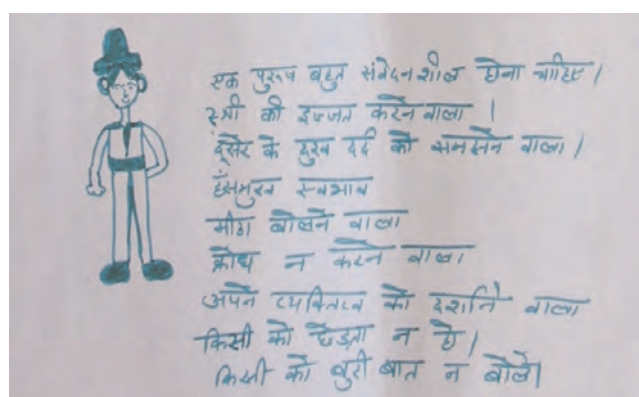 एक पुरुष बहुत संवेदनशील होना चाहिए।
स्त्री की इज्जत करने वाला ।
दूसरे के दुख दर्द को समझने वाला।
हँसमुख स्वभाव
मीठा बोलने वाला
क्रोध न करने वाला
अपने व्यक्तित्व को दर्शाने वाला
किसी को छेड़ता न हो।
किसी को बुरी बात न बोले।